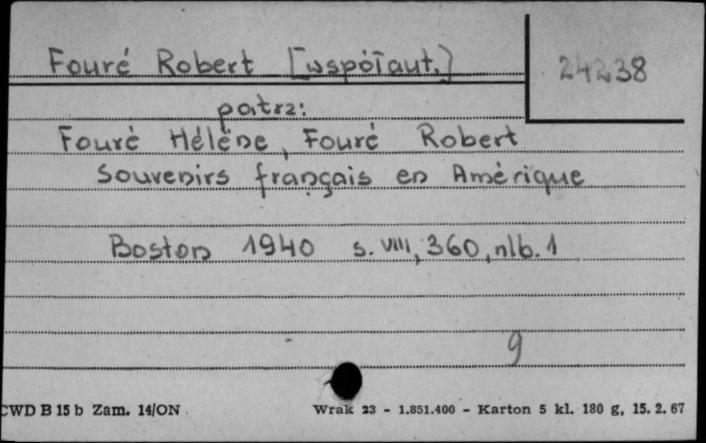 Fouré Robert [współaut.]
24238
patrz:
Fouré Hélène, Fouré Robert
Souvenirs français en Amérique
Boston 1940 s. VIII, 360, nlb. 1
9
CWD B 15 b Zam. 14/ON Wrak 23 - 1.851.400 - Karton 5 kl. 180 g, 15. 2. 67